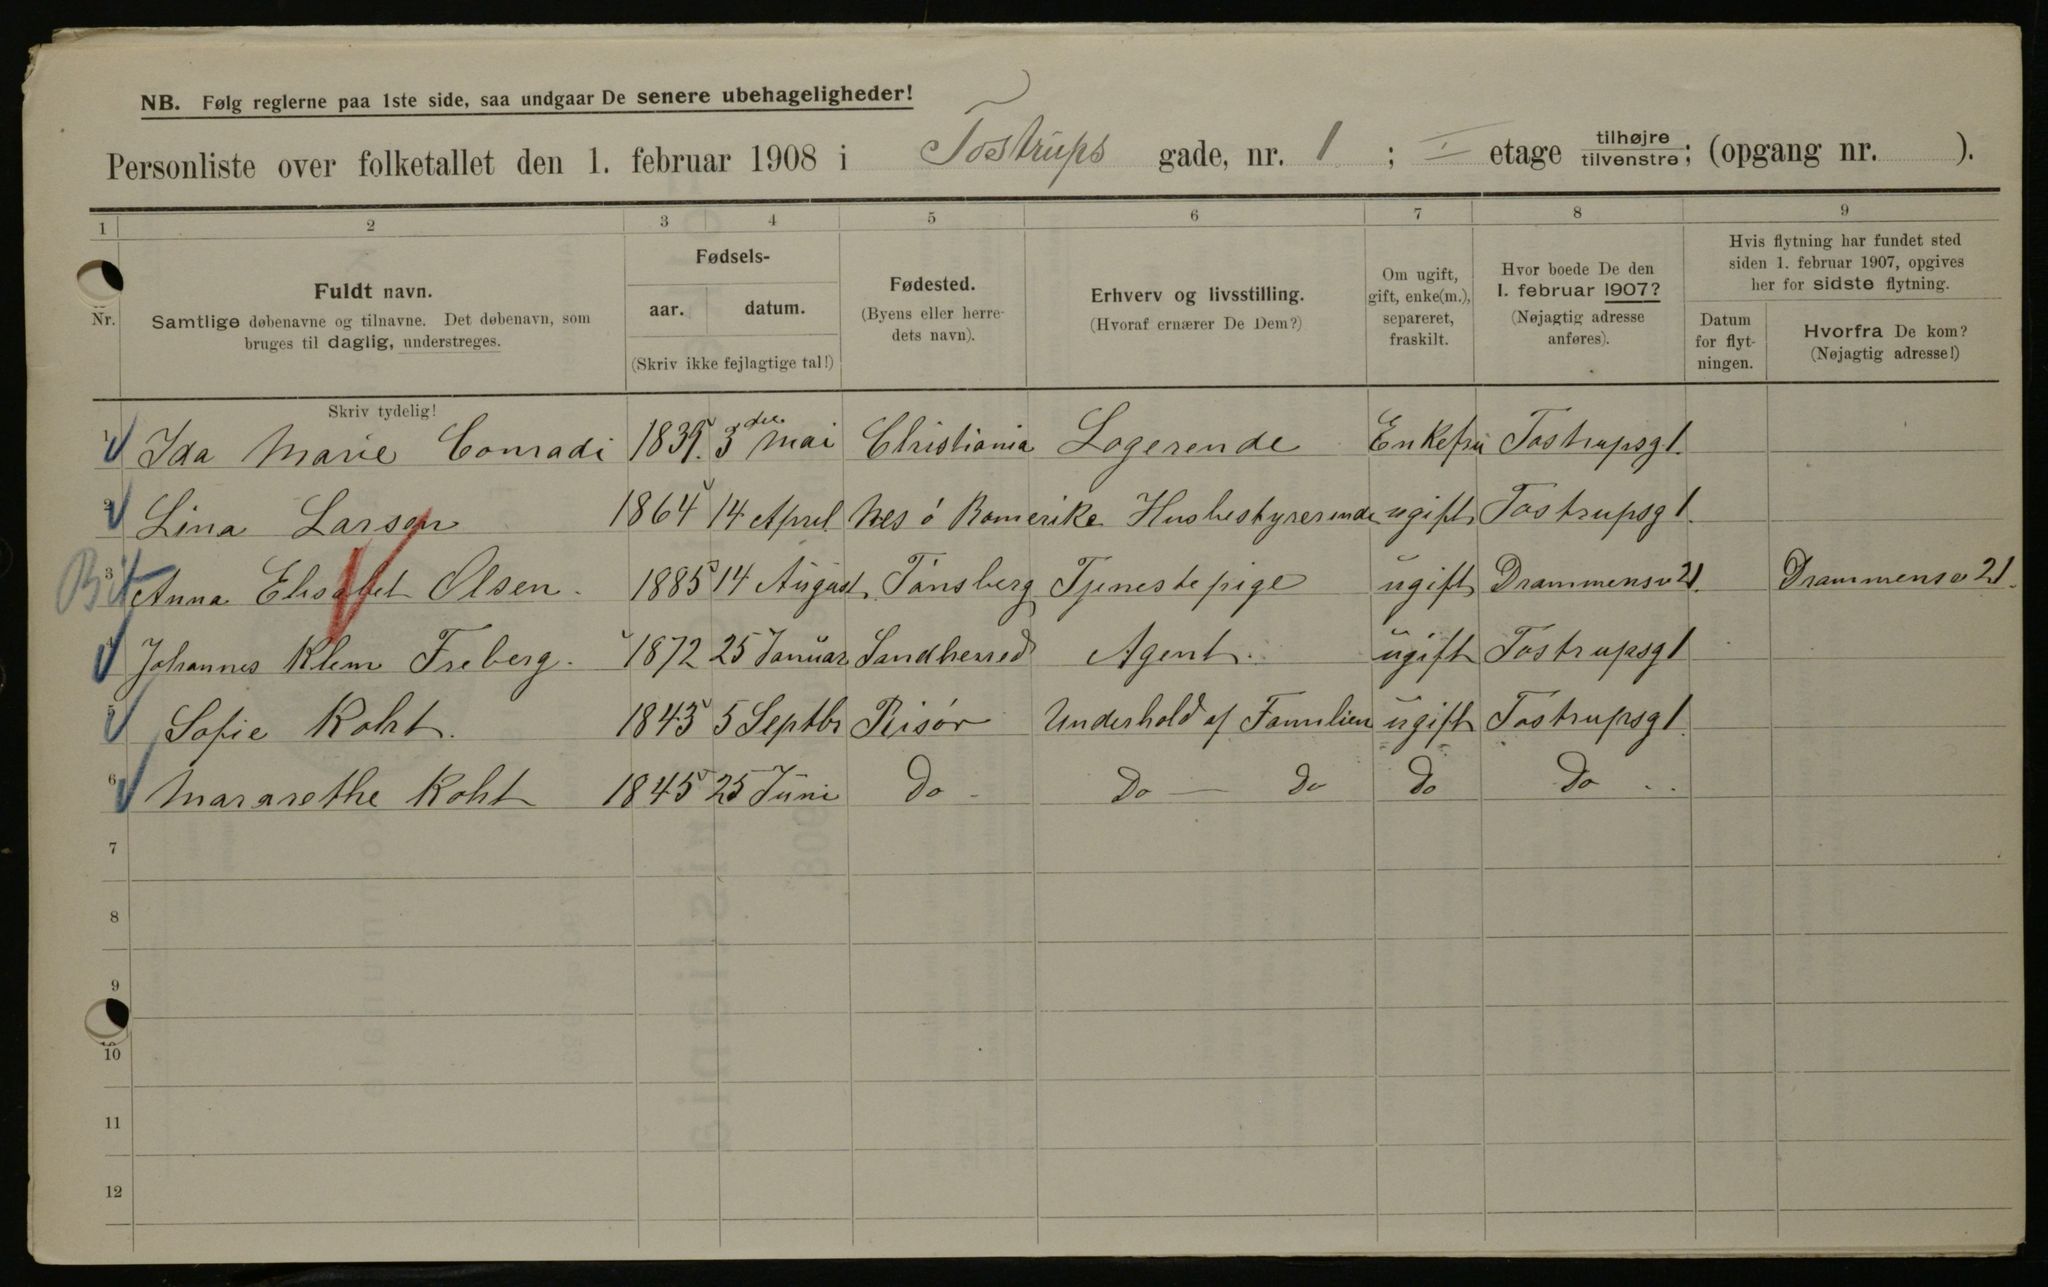 NB. Følg reglerne paa 1ste side, saa undgaar De senere ubehageligheder!
Personliste over folketallet den 1. februar 1908 i Tostrups gade, nr. 1 ; I etage tilhøjre tilvenstre; (opgang nr. ).
1 2 3 4 5 6 7 8 9
Nr.
Fuldt navn.
Samtlige døbenavne og tilnavne. Det døbenavn, som
bruges til daglig, understreges.
Skriv tydelig!
Fødsels-
aar. datum.
(Skriv ikke fejlagtige tal!)
Fødested.
(Byens eller herre-
dets navn).
Erhverv og livsstilling.
(Hvoraf ernærer De Dem?)
Om ugift,
gift, enke(m.),
separeret,
fraskilt.
Hvor boede De den
1. februar 1907?
(Nøjagtig adresse
anføres).
Hvis flytning har fundet sted
siden 1. februar 1907, opgives
her for sidste flytning.
Datum
for flyt-
ningen.
Hvorfra De kom?
(Nøjagtig adresse!)
1 Ida Marie Conradi 1839. 3 die Mai Christiania Logerende Enkefru Tostrupsg 1.
2 Lina Larsen 1864 14 April Nes ó Romerike Husbestyrerende ugift Tostrupsg 1.
3 Anna Elisabet Olsen. 1885 14 August Tónsberg Tjenestepige ugift Drammensv 21. Drammensv 21.
4 Johannes Klem Freberg. 1872 25 Januar Sandherred Agent. ugift Tostrupsg 1
5 Sofie Koht. 1843 5 Septbr Risór Underhold af Familien ugift Tostrupsg 1.
6 Mararethe Koht 1845 25 Juni Do - Do — Do Do Do ..
7
8
9
10
11
12